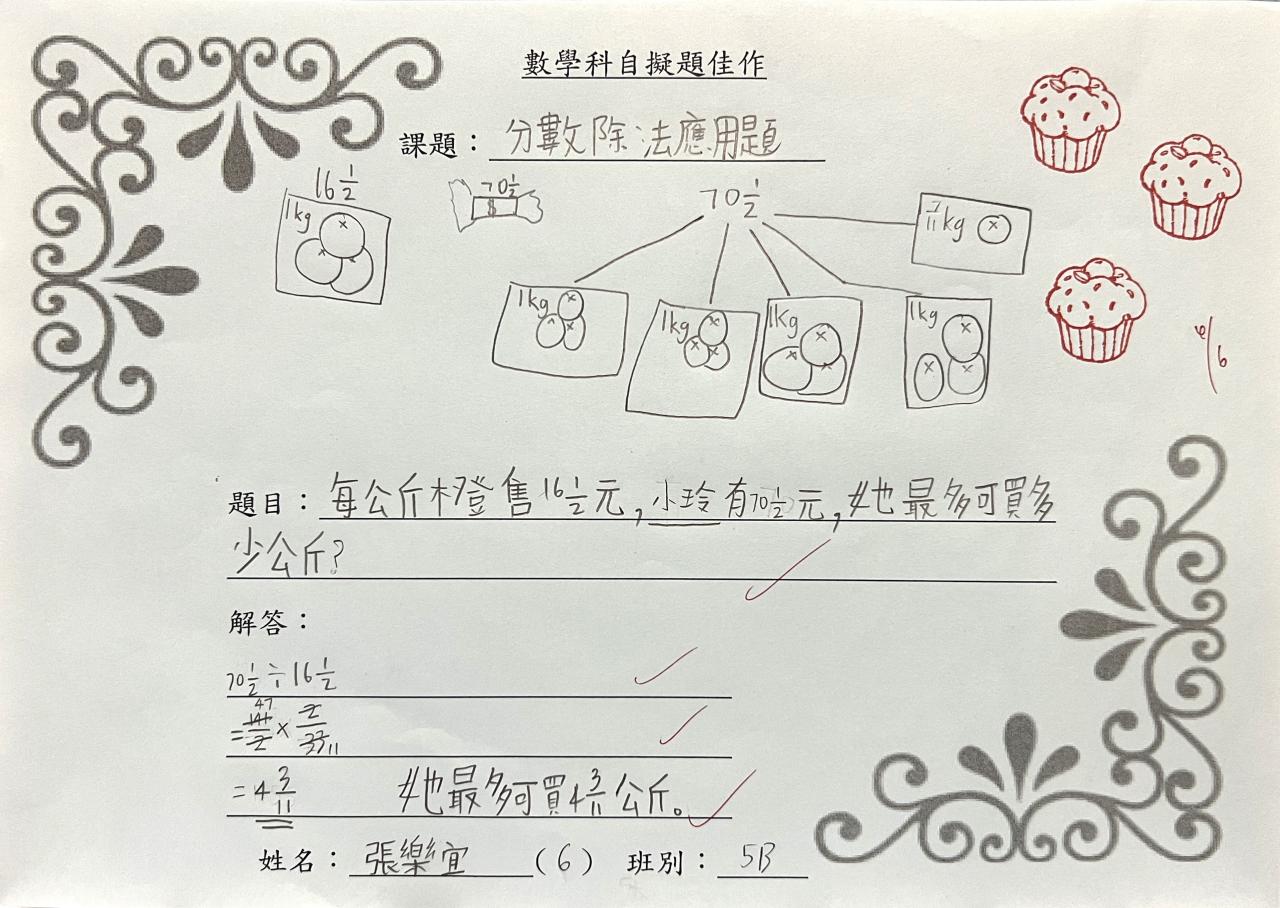 數學科自擬題佳作
課題：分數除法應用題
16 1/2
1kg
70 1/2
$
70 1/2
7/11 kg
1kg
1kg
1kg
1kg
6/6
題目：每公斤橙售16 1/2元，小玲有70 1/2元，她最多可買多
少公斤?
解答：
70 1/2 ÷ 16 1/2
= 141/2 × 2/33
47
11
= 4 3/11 她最多可買4 3/11公斤。
姓名：張樂宜 (6) 班別：5B